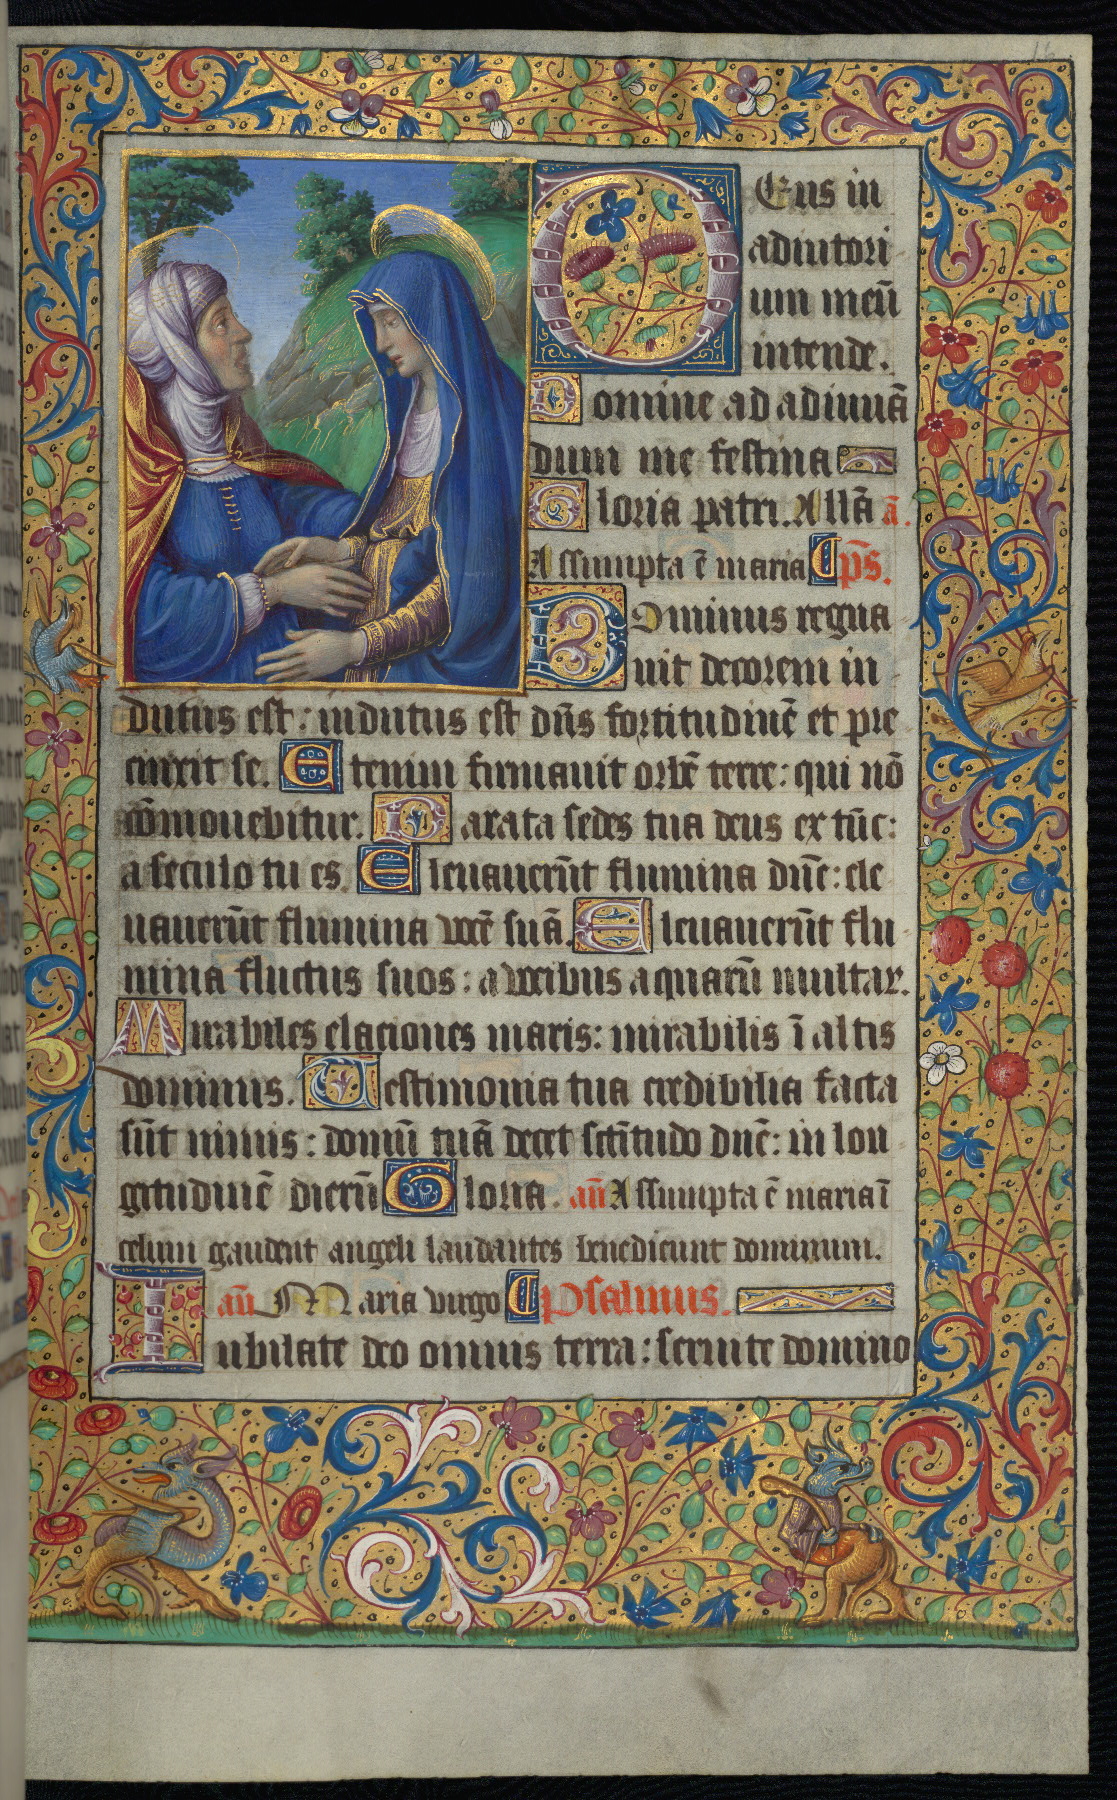 Eus in
adiutori
um meū
intende.
Domine ad adiuuā
dum me festina
Gloria patri. Allā ā.
Assumpta ē maria p̄s.
Dominus regna
uit decorem in
dutus est: indutus est dn̄s fortitudinē et pre
cinxit se. Etenim firmauit orbē terre: qui nō
cōmouebitur. Parata sedes tua deus ex tūc:
a seculo tu es. Eleuauerūt flumina dn̄e: ele
uauerūt flumina vocē suā Eleuauerūt flu
mina fluctus suos: a vocibus aquarū multar.
Mirabiles elaciones maris: mirabilis ī altis
dominus. Testimonia tua credibilia facta
sūt nimis: domū tuā decet sc̄titudo dn̄e: in lon
gitudinē dierū Gloria. an̄ Assumpta ē maria ī
celum gaudent angeli laudantes benedicunt dominum.
an̄ Maria virgo Psalmus.
Iubilate deo omnis terra: seruite domino